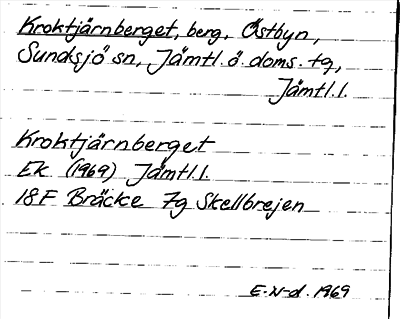 Kroktjärnberget, berg, Östbyn,
Sundsjö sn, Jämtl. ö. doms. tg,
Jämtl.l.
Kroktjärnberget
Ek (1969) Jämtl.l.
18F Bräcke 7g Skellbrejen
E. N-d. 1969